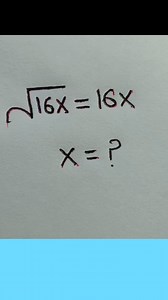 √16x = 16x
x = ?